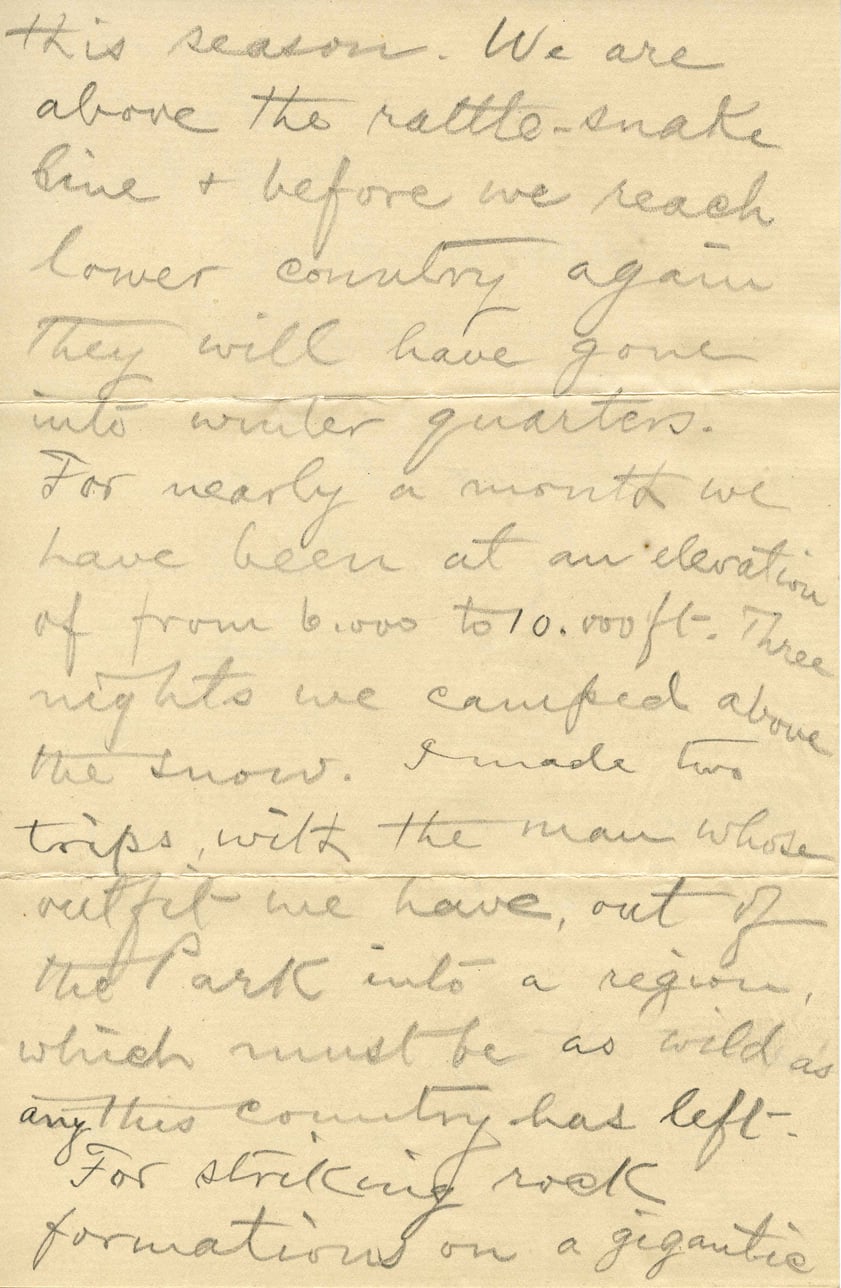 this season. We are
above the rattle-snake
line + before we reach
lower country again
they will have gone
into winter quarters.
For nearly a month we
have been at an elevation
of from 6.000 to 10.000 ft. Three
nights we camped above
the snow. I made two
trips, with the man whose
outfit we have, out of
the Park into a region,
which must be as wild as
any this country has left.
For striking rock
formations on a gigantic